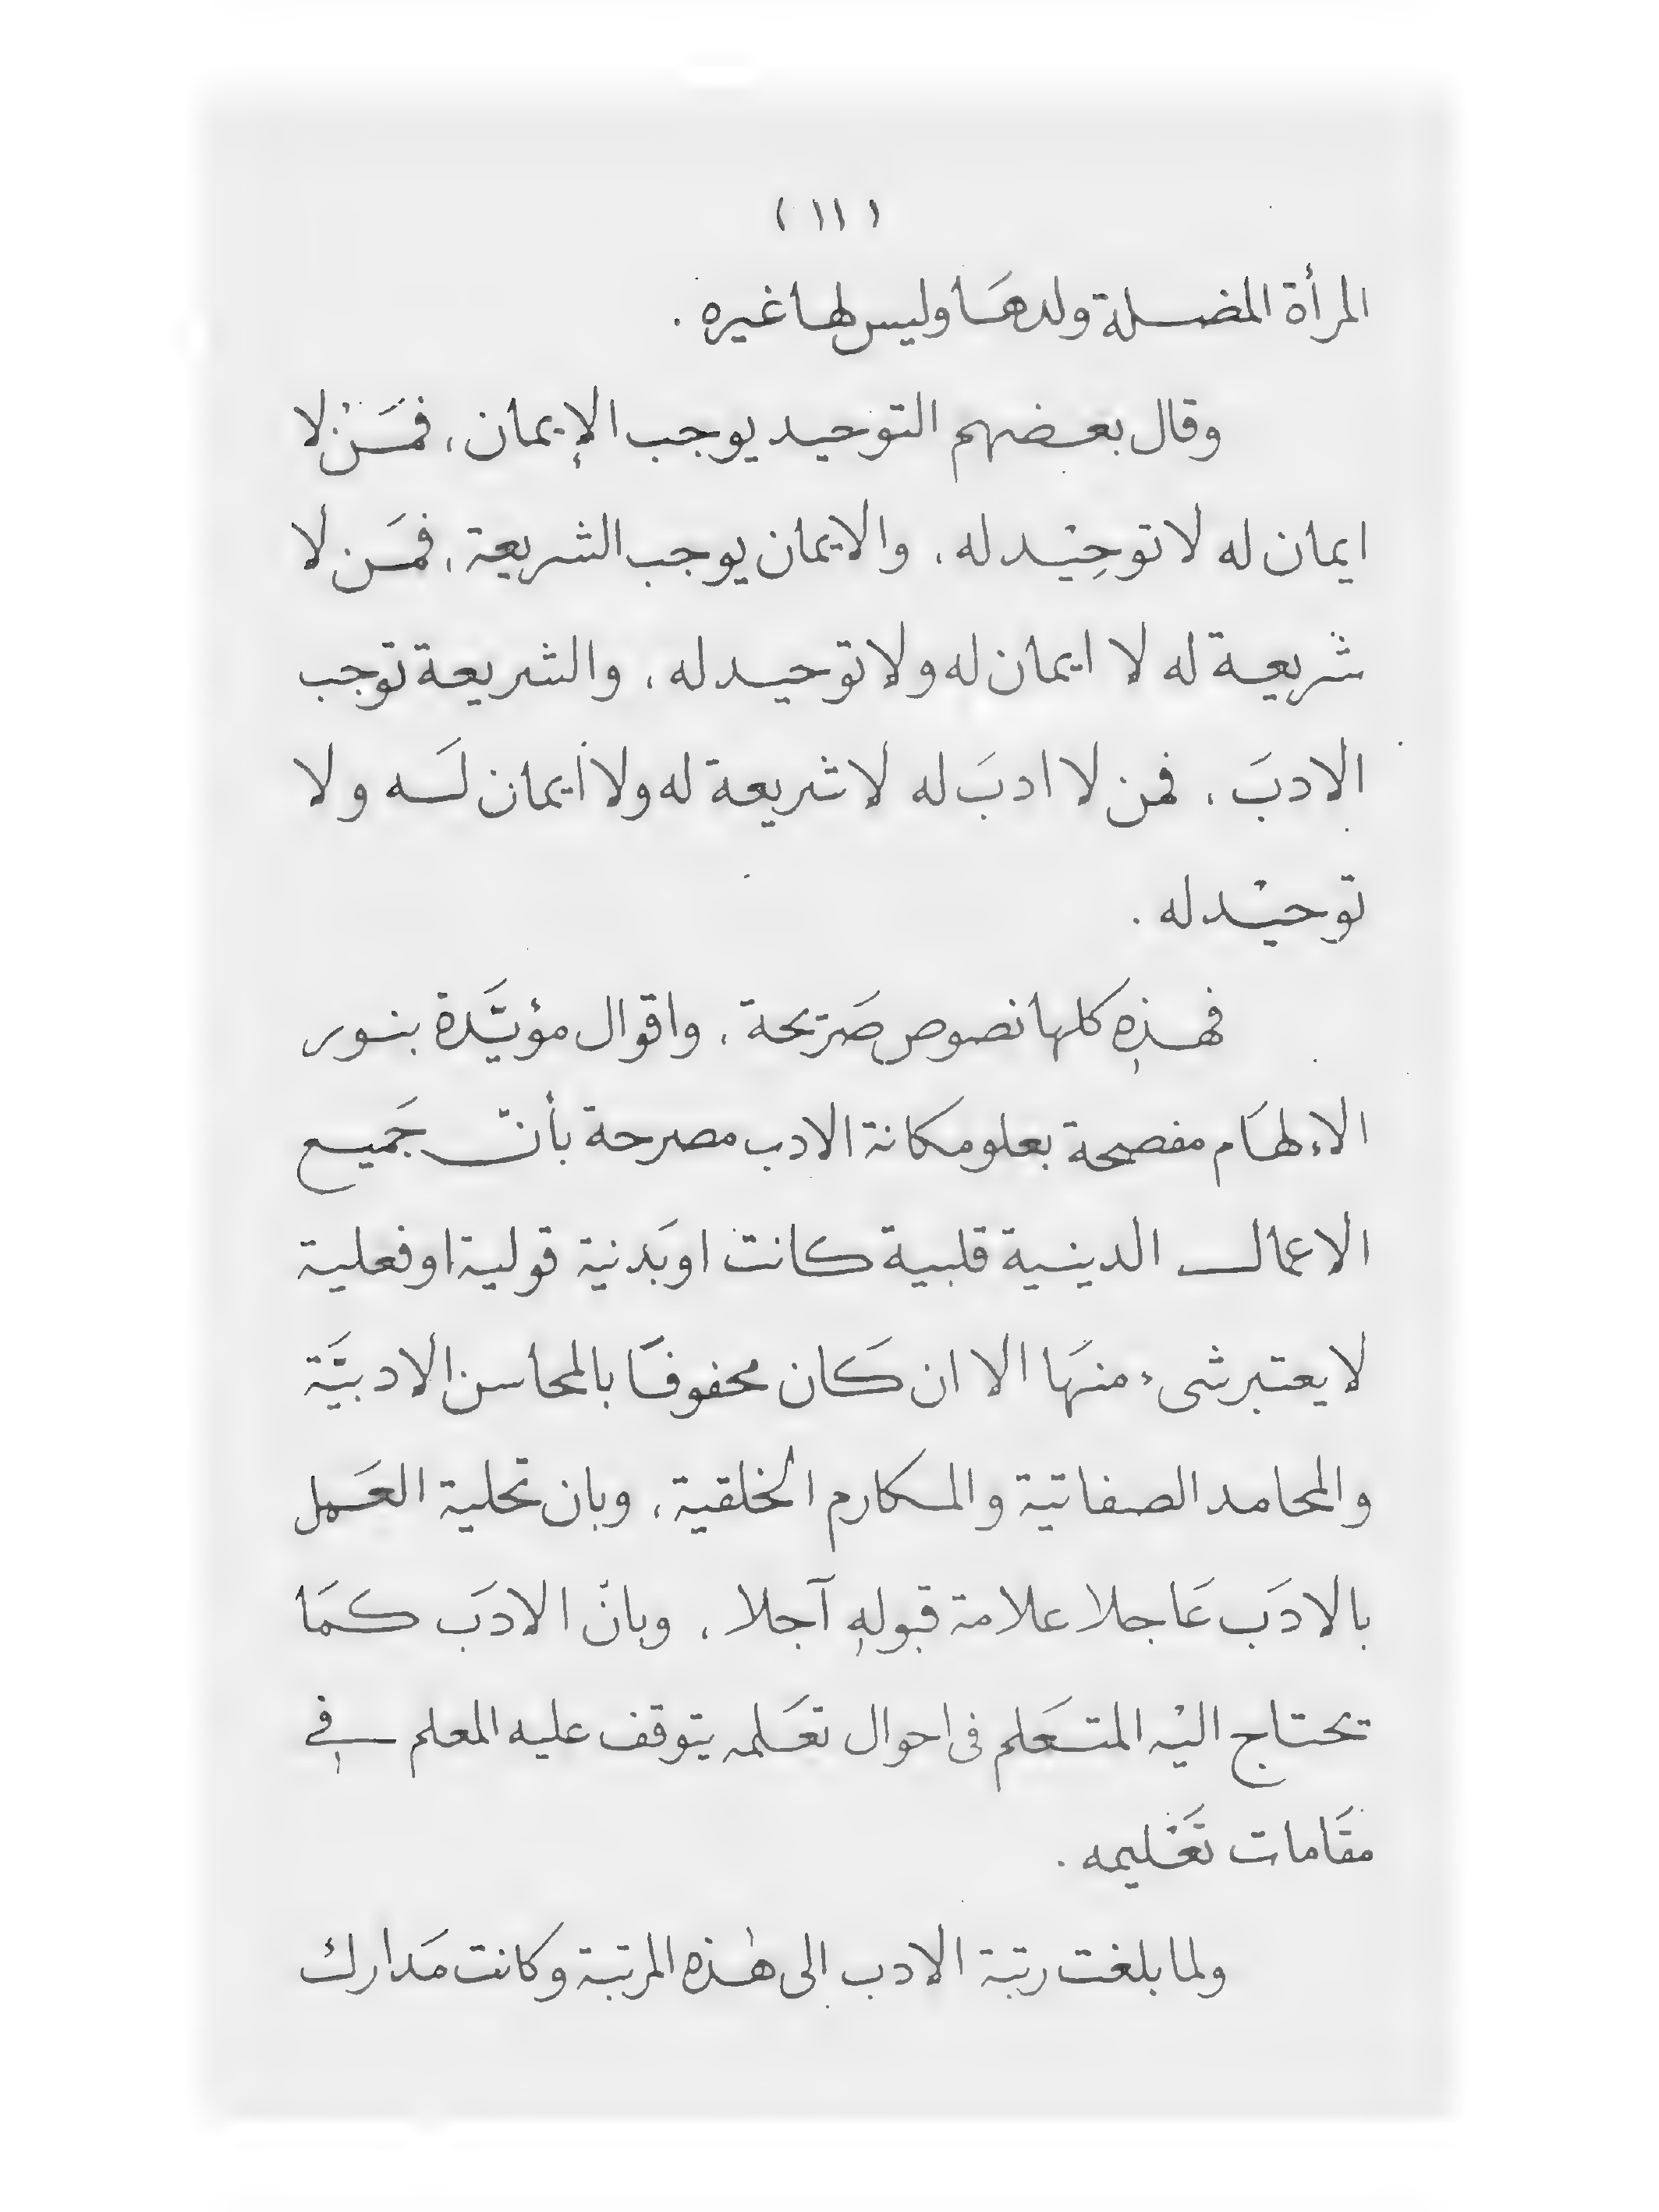 ( ١١ )
المرأة المضلة ولدهَا وليس لها غيره .
وقال بعضهم التوحيد يوجب الإيمان ، فمَنْ لا
ايمان له لا توحِيْد له ، والايمان يوجب الشريعة ، فمَن لا
شريعة له لا ايمان له ولا توحيد له ، والشريعة توجب
الادبَ ، فمن لا ادبَ له لا شريعة له ولا أيمان لَه ولا
توحيْد له .
فهذهِ كلها نصوص صَرَيحة ، واقوال مؤيَّدة بنور
الاءلهَام مفصحة بعلو مكانة الادب مصرحة بأنّ جَميع
الاعمال الدينية قلبية كانت او بَدنية قولية او فعلية
لا يعتبر شىء منهَا الا ان كَان محفوفًا بالمحاسن الادبيَّة
والمحامد الصفاتية والمكارم الخلقية ، وبان تحلية العَمل
بالادَب عَاجلا علامة قبولهِ آجلا ، وبانّ الادَب كمَا
تحتاج اليْه المتعَلم فى احوال تعَلمه يتوقف عليه المعلم فِي
مقَامات تَعْليمه .
ولما بلغت رتبة الادب الى هٰذه المرتبة وكانت مَدارك